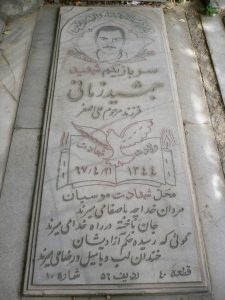 سرباز یکم شهید
جمشید زمانی
فرزند مرحوم علی اصغر
ولادت شهادت
۱۳۴۴ ۶۷/۴/۲۱
محل شهادت موسیان
مردان خدا چه باصفا می میرند
جان باخته در راه خدا می میرند
گوئی که رسیده حکم آزادیشان
خندان لب و با میل و رضا می میرند
قطعه ۴۰ ردیف ۵۶ شماره ۱۰